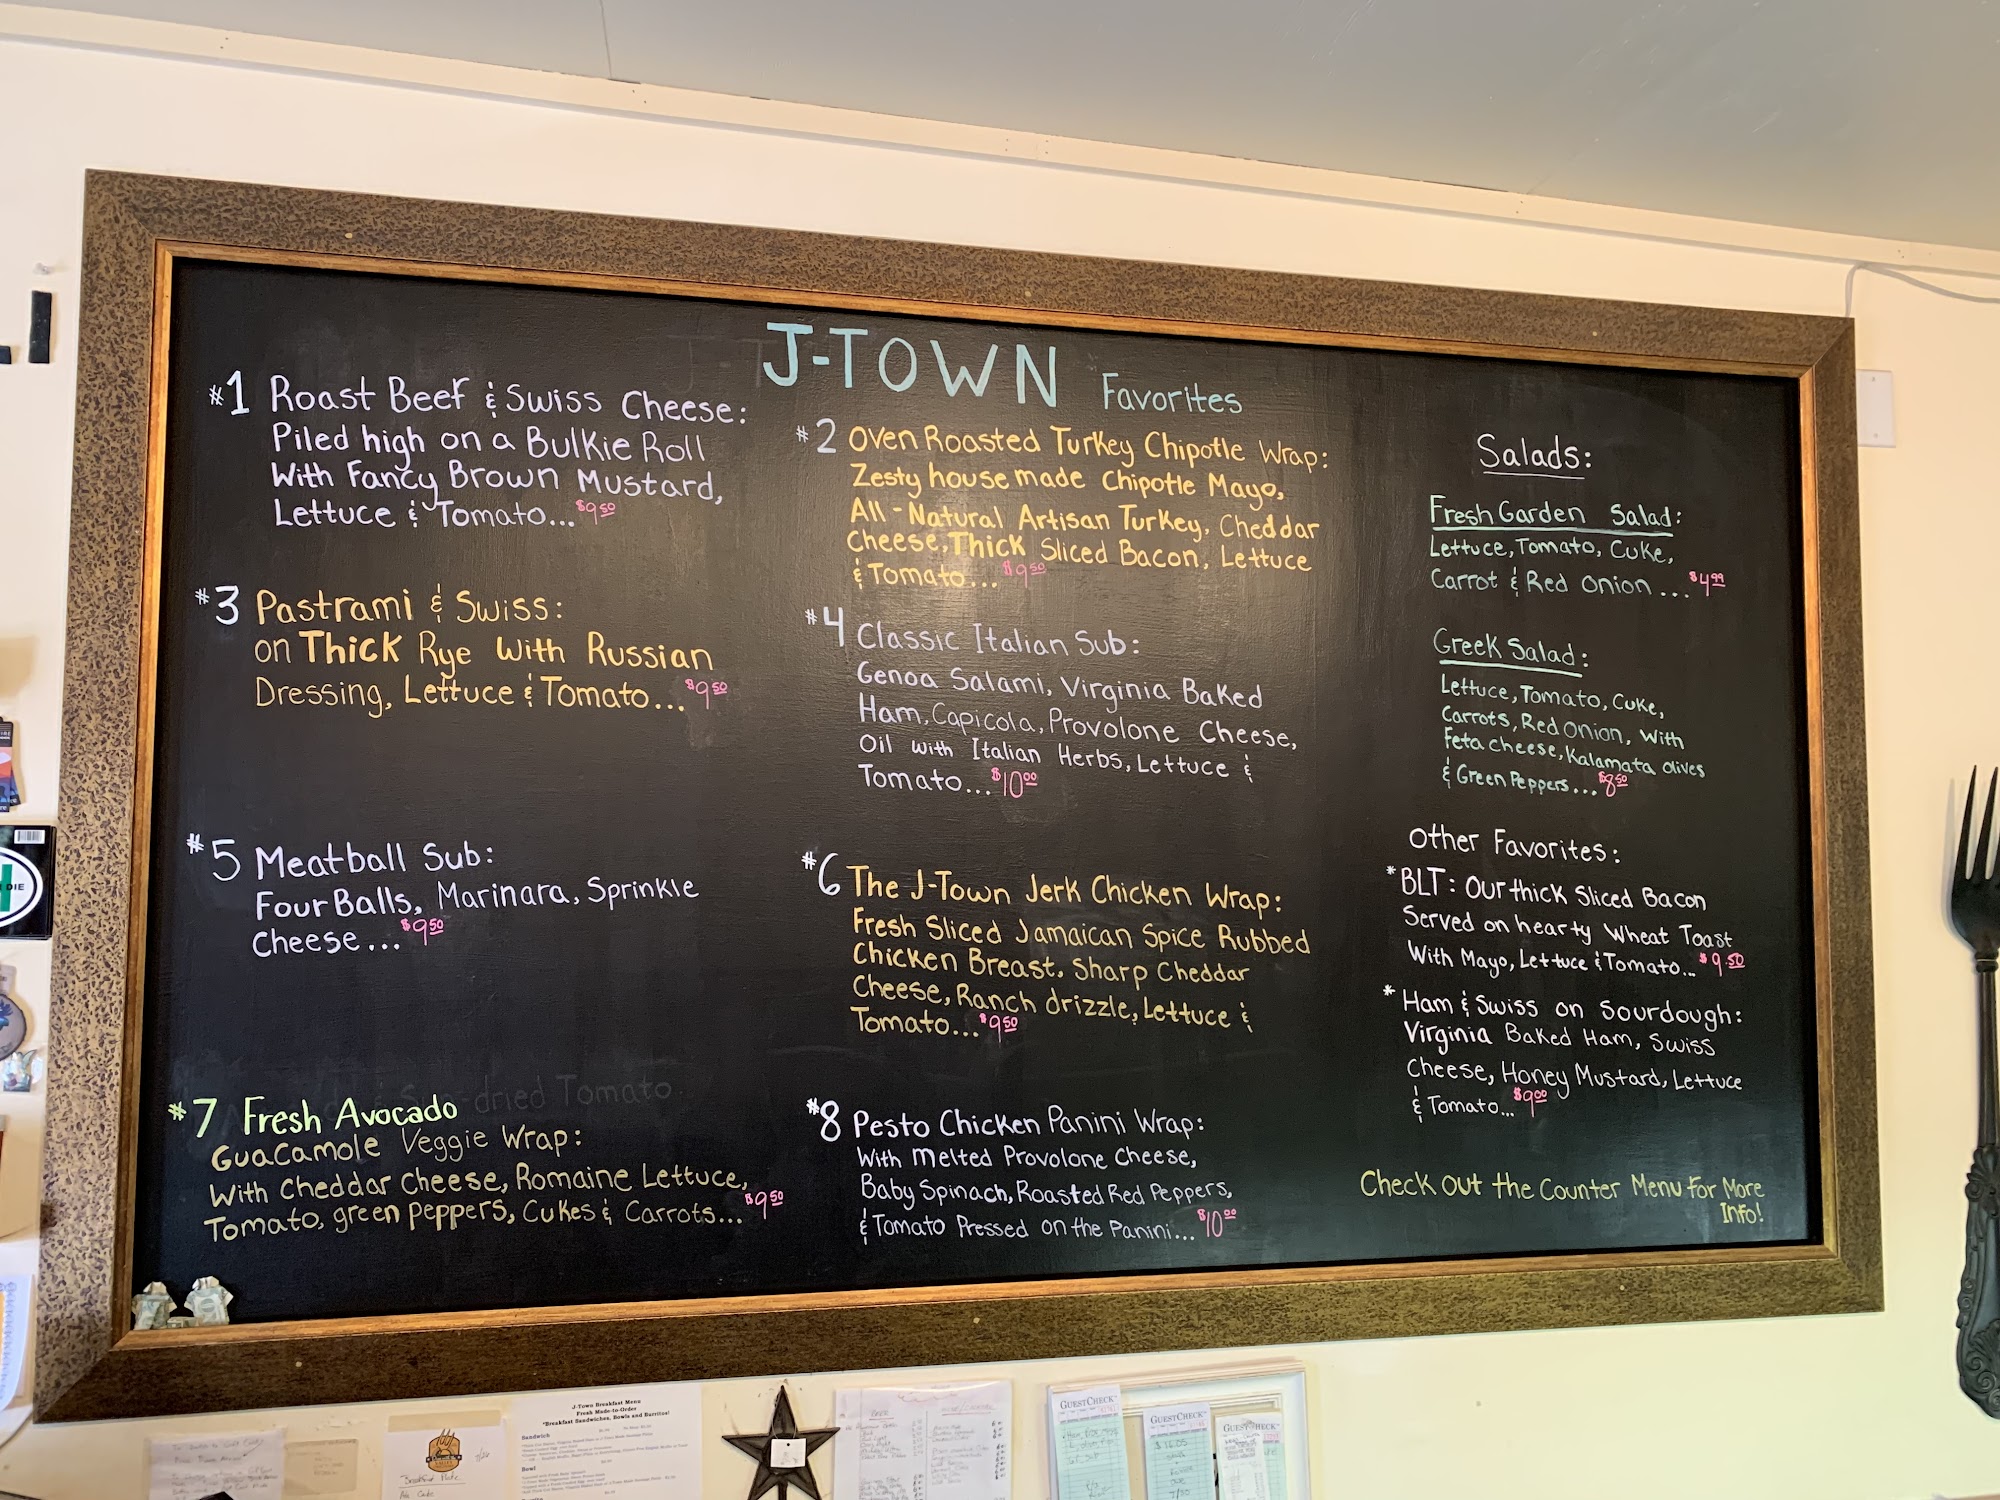 J-TOWN Favorites
#1 Roast Beef & Swiss Cheese:
Piled high on a Bulkie Roll
With Fancy Brown Mustard,
Lettuce & Tomato... $9.50
#2 Oven Roasted Turkey Chipotle Wrap:
Zesty house made Chipotle Mayo,
All-Natural Artisan Turkey, Cheddar
Cheese, Thick Sliced Bacon, Lettuce
& Tomato... $9.50
#3 Pastrami & Swiss:
on Thick Rye With Russian
Dressing, Lettuce & Tomato... $9.50
#4 Classic Italian Sub:
Genoa Salami, Virginia Baked
Ham, Capicola, Provolone Cheese,
Oil with Italian Herbs, Lettuce &
Tomato... $10.00
#5 Meatball Sub:
Four Balls, Marinara, Sprinkle
Cheese... $9.50
#6 The J-Town Jerk Chicken Wrap:
Fresh Sliced Jamaican Spice Rubbed
Chicken Breast, Sharp Cheddar
Cheese, Ranch drizzle, Lettuce &
Tomato... $9.50
#7 Fresh Avocado
-dried Tomato
Guacamole Veggie Wrap:
With Cheddar Cheese, Romaine Lettuce,
Tomato, green peppers, Cukes & Carrots... $9.50
#8 Pesto Chicken Panini Wrap:
With melted Provolone Cheese,
Baby Spinach, Roasted Red Peppers,
& Tomato Pressed on the Panini... $10.00
Salads:
Fresh Garden Salad:
Lettuce, Tomato, Cuke,
Carrot & Red Onion... $4.99
Greek Salad:
Lettuce, Tomato, Cuke,
Carrots, Red Onion, With
Feta cheese, Kalamata olives
& Green Peppers... $8.50
Other Favorites:
*BLT: Our thick Sliced Bacon
Served on hearty Wheat Toast
With Mayo, Lettuce & Tomato... $9.50
* Ham & Swiss on Sourdough:
Virginia Baked Ham, Swiss
Cheese, Honey Mustard, Lettuce
& Tomato... $9.00
Check out the Counter Menu For More
Info!
DIE
J-Town Breakfast Menu
Fresh Made-to-Order
*Breakfast Sandwiches, Bowls and Burritos!
Sandwich
Bowl
BEER
GUESTCHECK
GUESTCHECK
GUESTCHECK